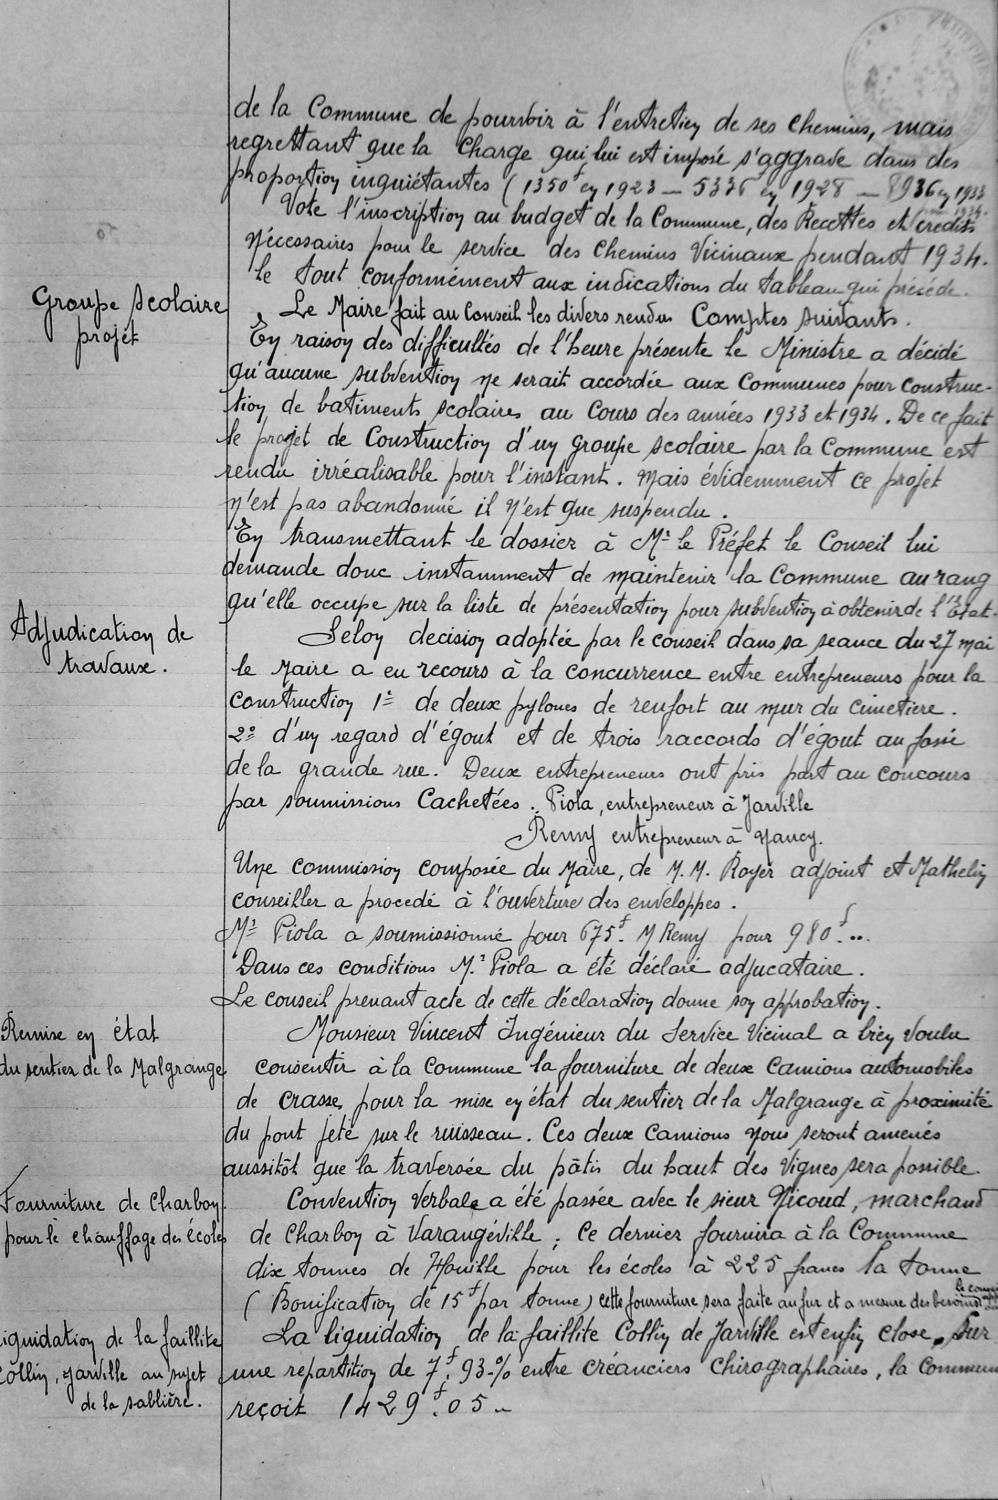 de la Commune de pourvoir à l'entretien de ses chemins, mais
regrettant que la Charge qui lui est imposé s'aggrave dans des
proportion inquiétantes (1350f en 1923 — 5376 en 1928 — 8936 en 1933
Vote l'inscription au budget de la Commune, des Recettes et crédits
Nécessaires pour le service des Chemins Vicinaux pendant 1934.
le tout conformément aux indications du tableau qui précède.
Le Maire fait au Conseil les divers rendus Comptes suivants.
Groupe scolaire
projet
En raison des difficultés de l'heure présente le Ministre a décidé
qu'aucune subvention ne serait accordée aux Communes pour construc-
tion de batiments scolaires au Cours des années 1933 et 1934. De ce fait
le projet de Construction d'un groupe scolaire par la Commune est
rendu irréalisable pour l'instant. Mais évidemment ce projet
n'est pas abandonné il n'est que suspendu.
En transmettant le dossier à Mr le Préfet le Conseil lui
demande donc instamment de maintenir la Commune au rang
qu'elle occupe sur la liste de présentation pour subvention à obtenir de l'Etat.
Adjudication de
travaux.
Selon decision adoptée par le conseil dans sa seance du 27 mai
le Maire a eu recours à la concurrence entre entrepreneurs pour la
construction 1e de deux pylones de renfort au mur du cimetiere.
2e d'un regard d'égout et de trois raccords d'égout au fossé
de la grande rue. Deux entrepreneurs ont pris part au concours
par soumissions Cachetées. Piola, entrepreneur à Jarville
Remy entrepreneur à Nancy.
Une commission composée du Maire, de M.M. Royer adjoint et Mathelin
conseiller a procedé à l'ouverture des enveloppes.
Mr Piola a soumissionné pour 675f. M Remy pour 980f...
Dans ces conditions Mr Piola a été déclaré adjucataire.
Le conseil prenant acte de cette déclaration donne son approbation.
Remise en état
du sentier de la Malgrange
Monsieur Vincent Ingénieur du Service Vicinal a bien voulu
consentir à la Commune la fourniture de deux Camions automobiles
de crasse, pour la mise en état du sentier de la Malgrange à proximité
du pont jeté sur le ruisseau. Ces deux Camions nous seront amenés
aussitôt que la traversée du pâtis du haut des Vignes sera possible.
Fourniture de Charbon
pour le chauffage des écoles
Convention Verbale a été passée avec le sieur Nicoud, marchand
de Charbon à Varangéville; Ce dernier fournira à la Commune
dix tonnes de Houille pour les écoles à 225 francs la tonne
(Bonification de 15f par tonne) cette fourniture sera faite au fur et a mesure des besoins
Liquidation de la faillite
Collin, Jarville au sujet
de la sablière.
La liquidation de la faillite Collin de Jarville est enfin close, sur
une repartition de 7f,93% entre créanciers Chirographaires, la Commune
reçoit 1429f.05